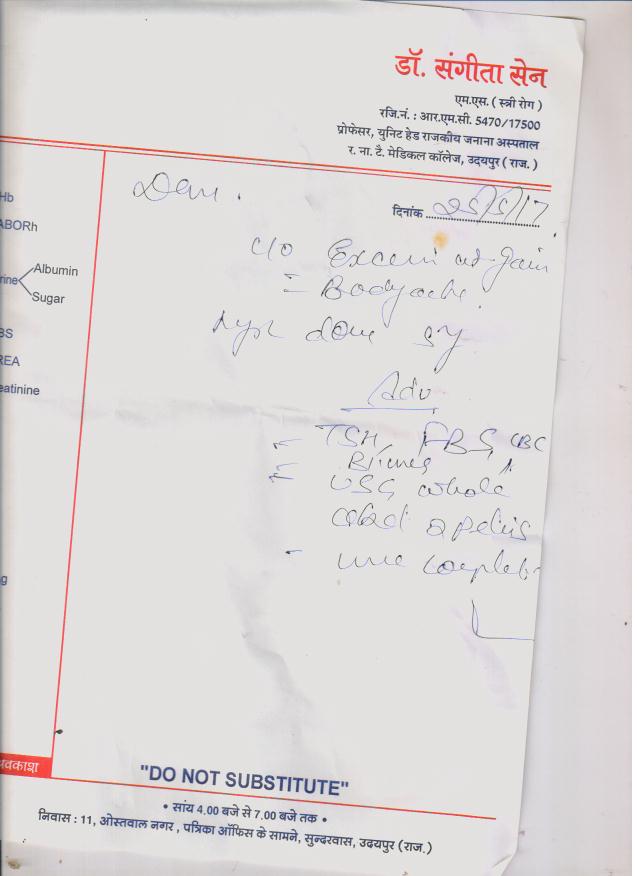 डॉ. संगीता सेन
एम.एस. ( स्त्री रोग )
रजि.नं. : आर.एम.सी. 5470/17500
प्रोफेसर, युनिट हेड राजकीय जनाना अस्पताल
र. ना. टै. मेडिकल कॉलेज, उदयपुर ( राज. )
दिनांक 25/5/17
Hb
ABORh
rine
Albumin
Sugar
BS
REA
eatinine
g
c/o Excess wt gain
= Bodyache.
Adv
- TSH, FBS, CBC
- USG whole
abd & pelvis
- urine complete
अवकाश
"DO NOT SUBSTITUTE"
• सांय 4.00 बजे से 7.00 बजे तक •
निवास : 11, ओस्तवाल नगर , पत्रिका ऑफिस के सामने, सुन्दरवास, उदयपुर (राज.)